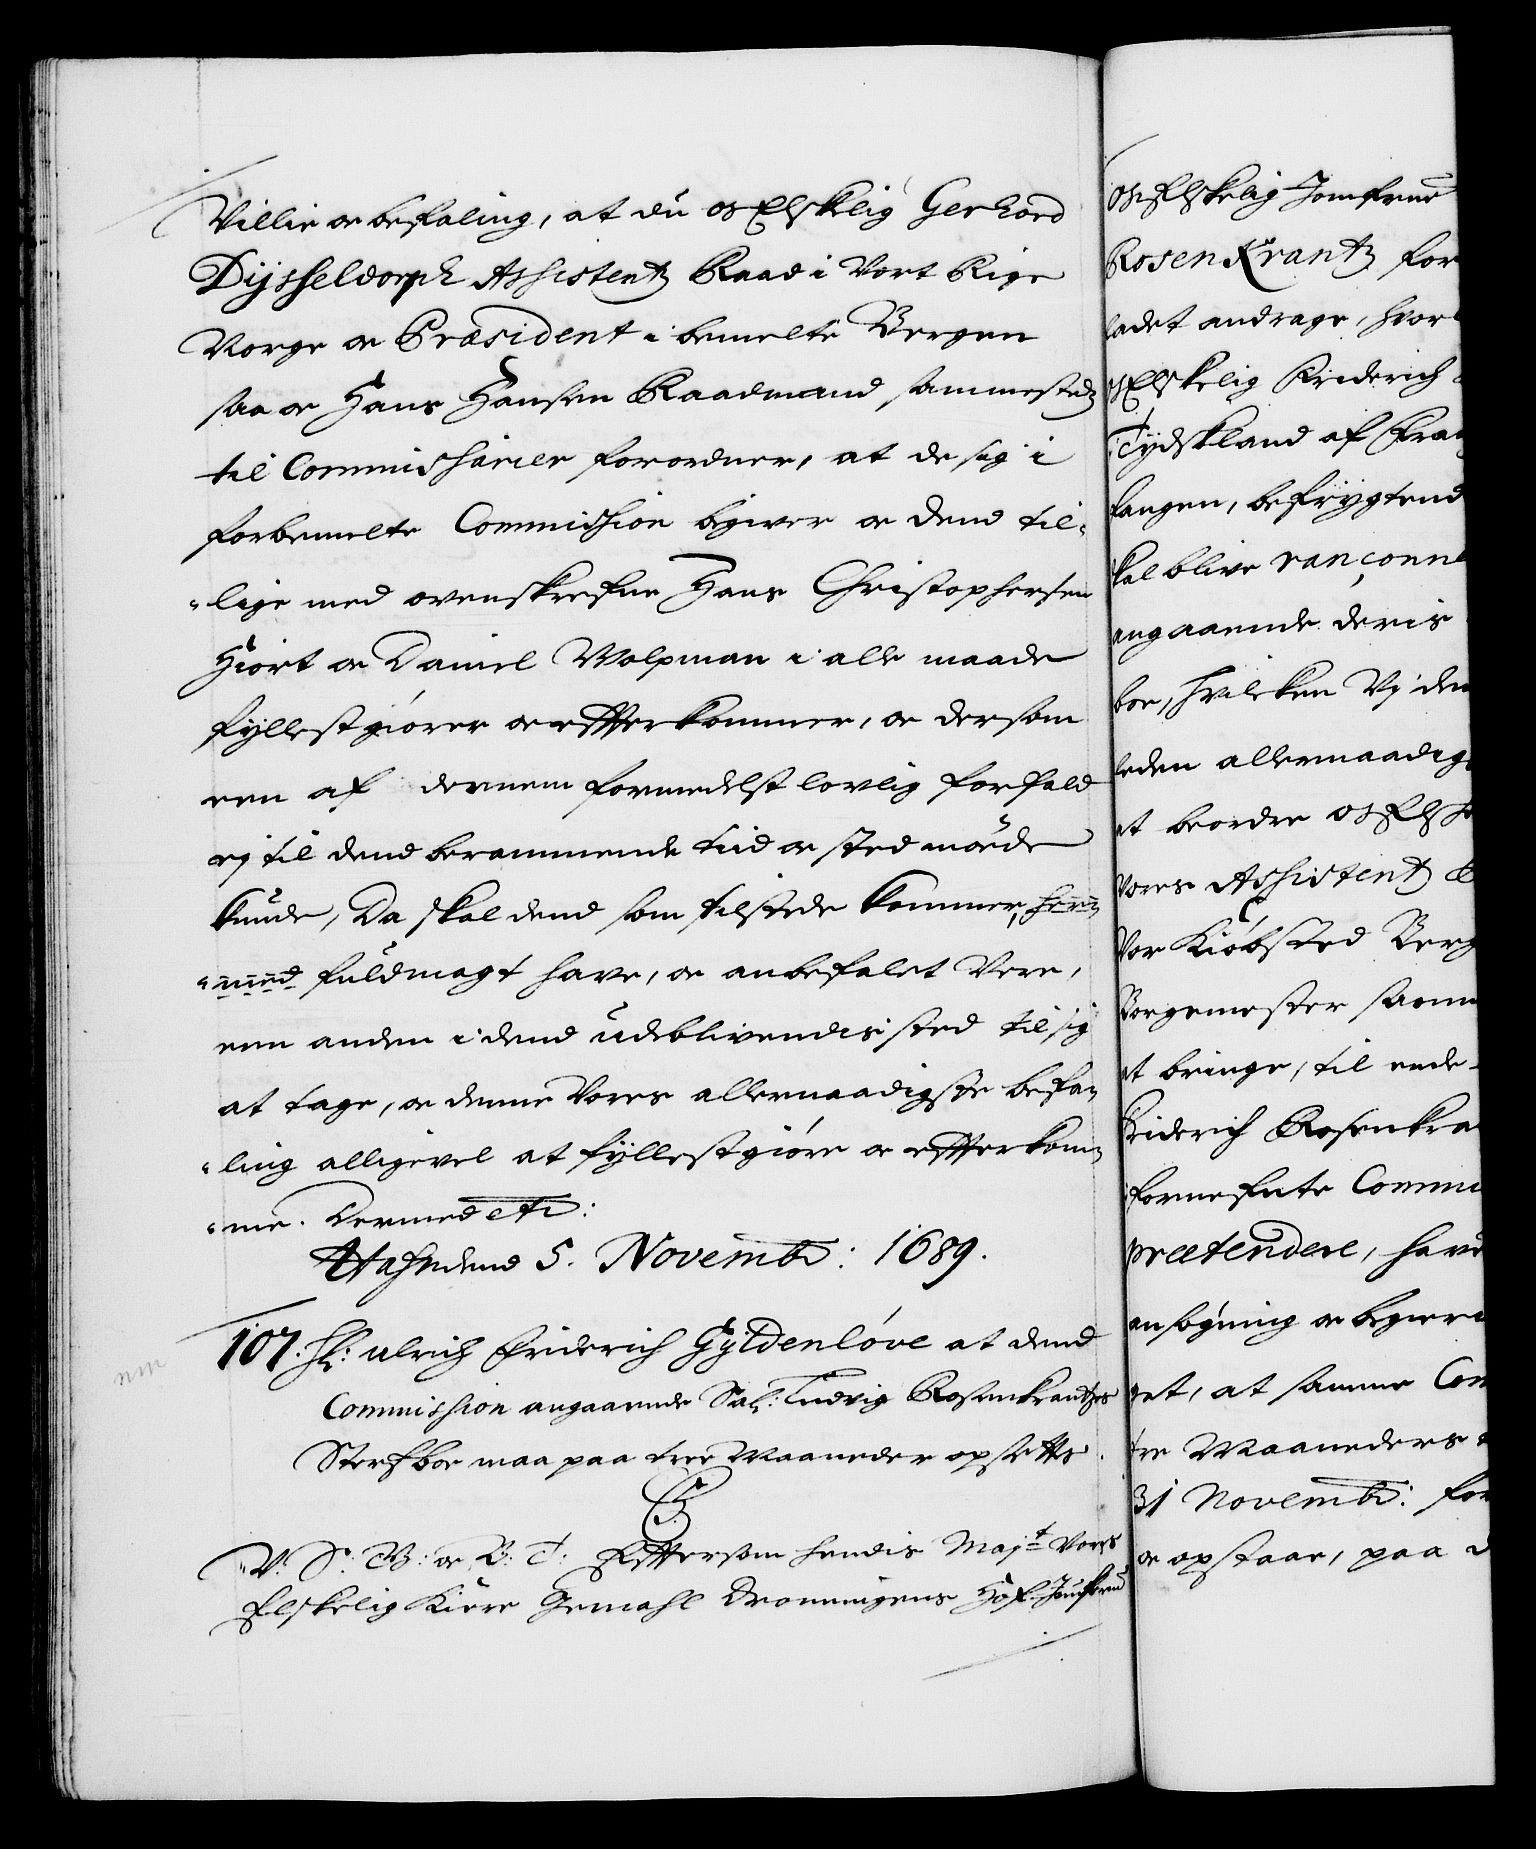 Villie oc befaling, at du os Elskelig Gerhard
Dÿsseldorph Assistentz Raad i Vort Rige
Norge oc Præsident i bemelte Bergen
saa oc Hans Hansen Raadmand sammestedz
til Commissarier forordner, at de sig i
forbemelte Commission begiver oc dend til-
lige med ovenskrefne Hans Christophersen
Hiort oc Daniel Wolpman i alle maade
fyllestgiörer oc efterkommer, oc dersom
een af dennem formedelst lovlig forfald
ej til dend berammende tiid oc sted möde
kunde, Da skal dend som tilstede kommer, her-
med fuldmagt have, oc anbefalet Vere,
een anden i dend udeblivendis sted til sig
at tage, oc denne Vores allernaadigste befa-
ling alligevel at fyllestgiöre oc efterkom-
me. Dermed etc:
Hafn dend 5. Novembr: 1689.
107. H: Ulrich Friderich Gyldenlöve at dend
Commission angaaende Sal: Ludvig Rosenkrantzes
Sterfboe maa paa tree Maaneder opsettes.
C5.
V. S. G: oc B: T: Eftersom hendis Majt Vores
Elskelig Kiere Gemahl Dronningens Hof-Jomfrue
os Elskelig Jomfrue
RosenKrantz for
ladet andrage, hvorl
os Elskelig Friderich
Tydskland af Fran
fangen, befrygtend
skal blive rançonne
angaaende deris
boe, hvilcken Vj den
leden allernaadigst
at beordre os Elsk
Vores Assistentz
Vor Kiöbsted Berg
Borgemester samm
at bringe, til ende-
Friderich Rosenkra
fornefnte Commi
prætendere, have
ansögning oc begiere
get, at samme Com
tre Maaneders
31 Novembr: for
oc opstaae, paa d